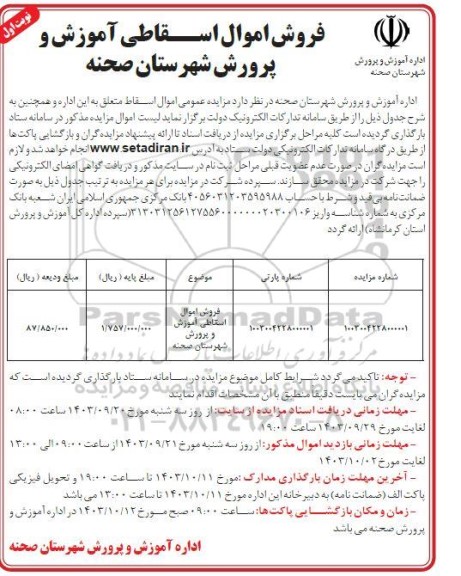 نوبت اول
فروش اموال اسقاطی آموزش و
پرورش شهرستان صحنه
اداره آموزش و پرورش
شهرستان صحنه
اداره آموزش و پرورش شهرستان صحنه در نظر دارد مزایده عمومی اموال اسقاط متعلق به این اداره و همچنین به
شرح جدول ذیل را از طریق سامانه تدارکات الکترونیک دولت برگزار نماید لیست اموال مزایده مذکور در سامانه ستاد
بارگذاری گردیده است کلیه مراحل برگزاری مزایده از دریافت اسناد تا ارائه پیشنهاد مزایده گران و بازگشایی پاکت ها
از طریق درگاه سامانه تدارکات الکترونیکی دولت ستاد به آدرس www.setadiran.ir انجام خواهد شد و لازم
است مزایده گران در صورت عدم عضویت قبلی مراحل ثبت نام در سایت مذکور و دریافت گواهی امضای الکترونیکی
را جهت شرکت در مزایده محقق سازند. سپرده شرکت در مزایده برای هر مزایده به ترتیب جدول ذیل به صورت
ضمانت نامه بی قید و شرط یا حساب ۴۰۵۶۰۳۱۲۰۳۵۹۵۹۸۸ بانک مرکزی جمهوری اسلامی ایران شعبه بانک
مرکزی به شماره شناسه واریز (سپرده اداره کل آموزش و پرورش
استان کرمانشاه) ارائه گردد
شماره مزایده شماره پارتی موضوع مبلغ پایه ( ریال) مبلغ ودیعه ( ریال)
۱۰۰۳۰۰۴۲۲۸۰۰۰۰۰۱ ۱۰۰۳۰۰۴۲۲۸۰۰۰۰۰۱ فروش اموال اسقاطی آموزش و پرورش شهرستان صحنه ۱/۷۵۷/۰۰۰/۰۰۰ ۸۷/۸۵۰/۰۰۰
- توجه: تاکید می گردد شرایط کامل موضوع مزایده در سامانه ستاد بارگذاری گردیده است که
مزایده گران می بایست دقیقا منطبق با آن مشخصات اقدام نمایند
- مهلت زمانی دریافت اسناد مزایده از سایت: از روز سه شنبه مورخ ۱۴۰۳/۰۹/۲۰ ساعت ۰۸:۰۰
لغایت مورخ ۱۴۰۳/۰۹/۲۹ ساعت ۱۹:۰۰
- مهلت زمانی بازدید اموال مذکور: از روز سه شنبه مورخ ۱۴۰۳/۰۹/۲۱ از ساعت ۰۹:۰۰ الی ۱۳:۰۰
لغایت مورخ ۱۴۰۳/۱۰/۰۲
- آخرین مهلت زمان بارگذاری مدارک: مورخ ۱۴۰۳/۱۰/۱۱ تا ساعت ۱۹:۰۰ و تحویل فیزیکی
پاکت الف (ضمانت نامه) به دبیرخانه این اداره مورخ ۱۴۰۳/۱۰/۱۱ تا ساعت ۱۳:۰۰ می باشد
- زمان و مکان بازگشایی پاکت ها: ساعت ۰۹:۰۰ صبح مورخ ۱۴۰۳/۱۰/۱۲ در اداره آموزش و
پرورش صحنه می باشد
اداره آموزش و پرورش شهرستان صحنه
ParsNamadData
۰۲۱-۸۸۳۴۹۶۷۰-۸